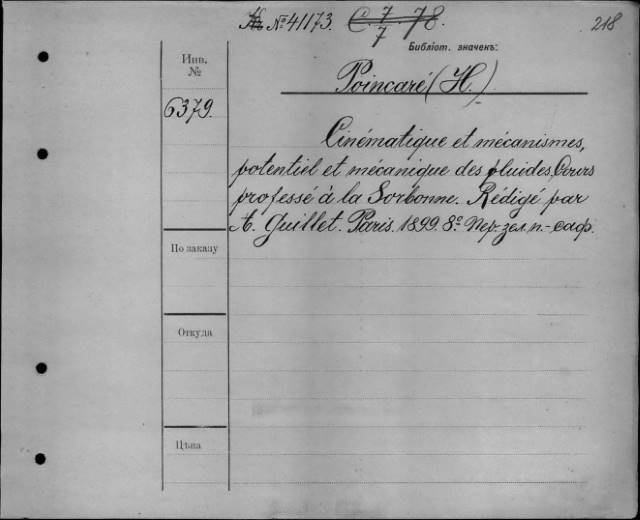 № 41173. C. 7/7 78. 218
Библіот. значекъ:
Инв.
№
Poincaré (H.)
6379.
Cinématique et mécanismes,
potentiel et mécanique des fluides, Cours
professé à la Sorbonne. Rédigé par
A. Guillet. Paris. 1899. 8º. Пер. зел. п.-саф.
По заказу
Откуда
Цѣна